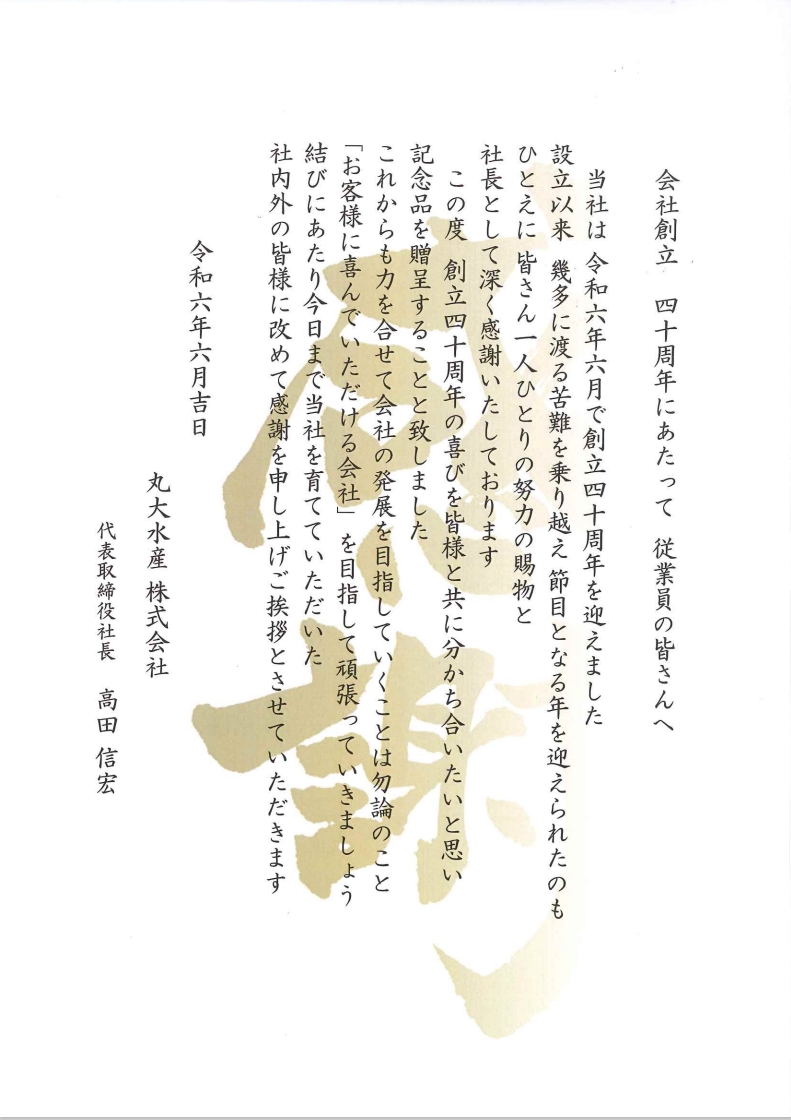 会社創立　四十周年にあたって　従業員の皆さんへ
当社は 令和六年六月で創立四十周年を迎えました
設立以来　幾多に渡る苦難を乗り越え 節目となる年を迎えられたのも
ひとえに 皆さん一人ひとりの努力の賜物と
社長として深く感謝いたしております
この度　創立四十周年の喜びを皆様と共に分かち合いたいと思い
記念品を贈呈することと致しました
これからも力を合せて会社の発展を目指していくことは勿論のこと
「お客様に喜んでいただける会社」を目指して頑張っていきましょう
結びにあたり今日まで当社を育てていただいた
社内外の皆様に改めて感謝を申し上げご挨拶とさせていただきます
令和六年六月吉日
丸大水産 株式会社
代表取締役社長　高田 信宏
感謝